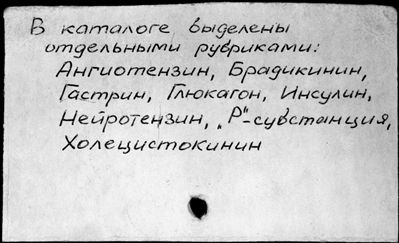 В каталоге выделены
отдельными рубриками:
Ангиотензин, Брадикинин,
Гастрин, Глюкагон, Инсулин,
Нейротензин, „Р"-субстанция,
Холецистокинин